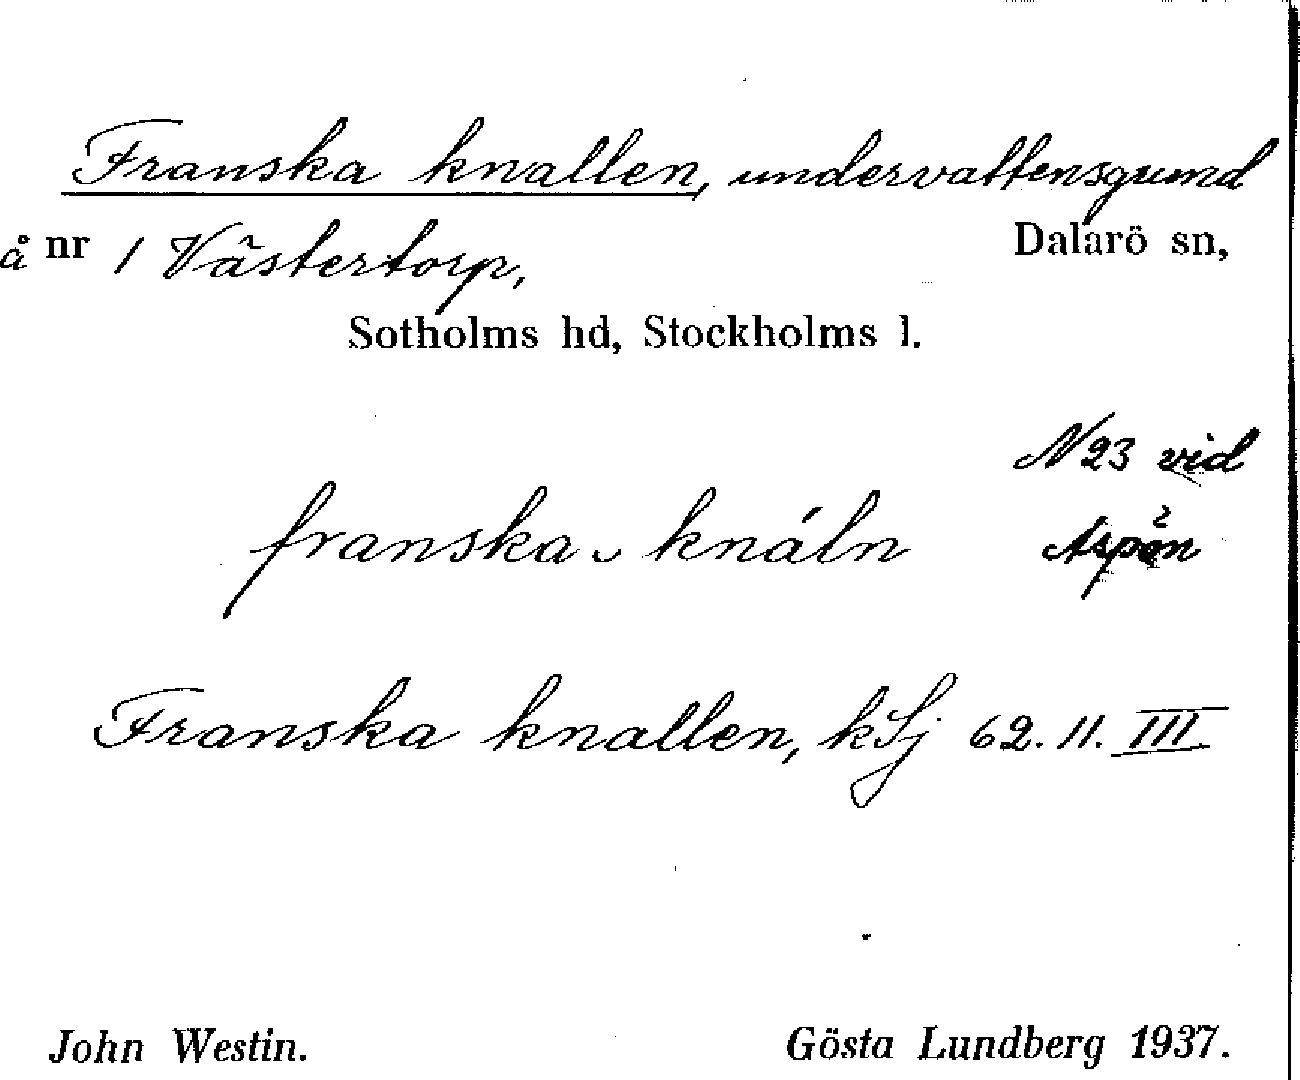 Franska knallen, undervattensgrund
å nr 1 Västertorp, Dalarö sn,
Sotholms hd, Stockholms l.
N 23 vid
franska ᴗ knáln Aspön
Franska knallen, kSj 62. 11. III
John Westin. Gösta Lundberg 1937.